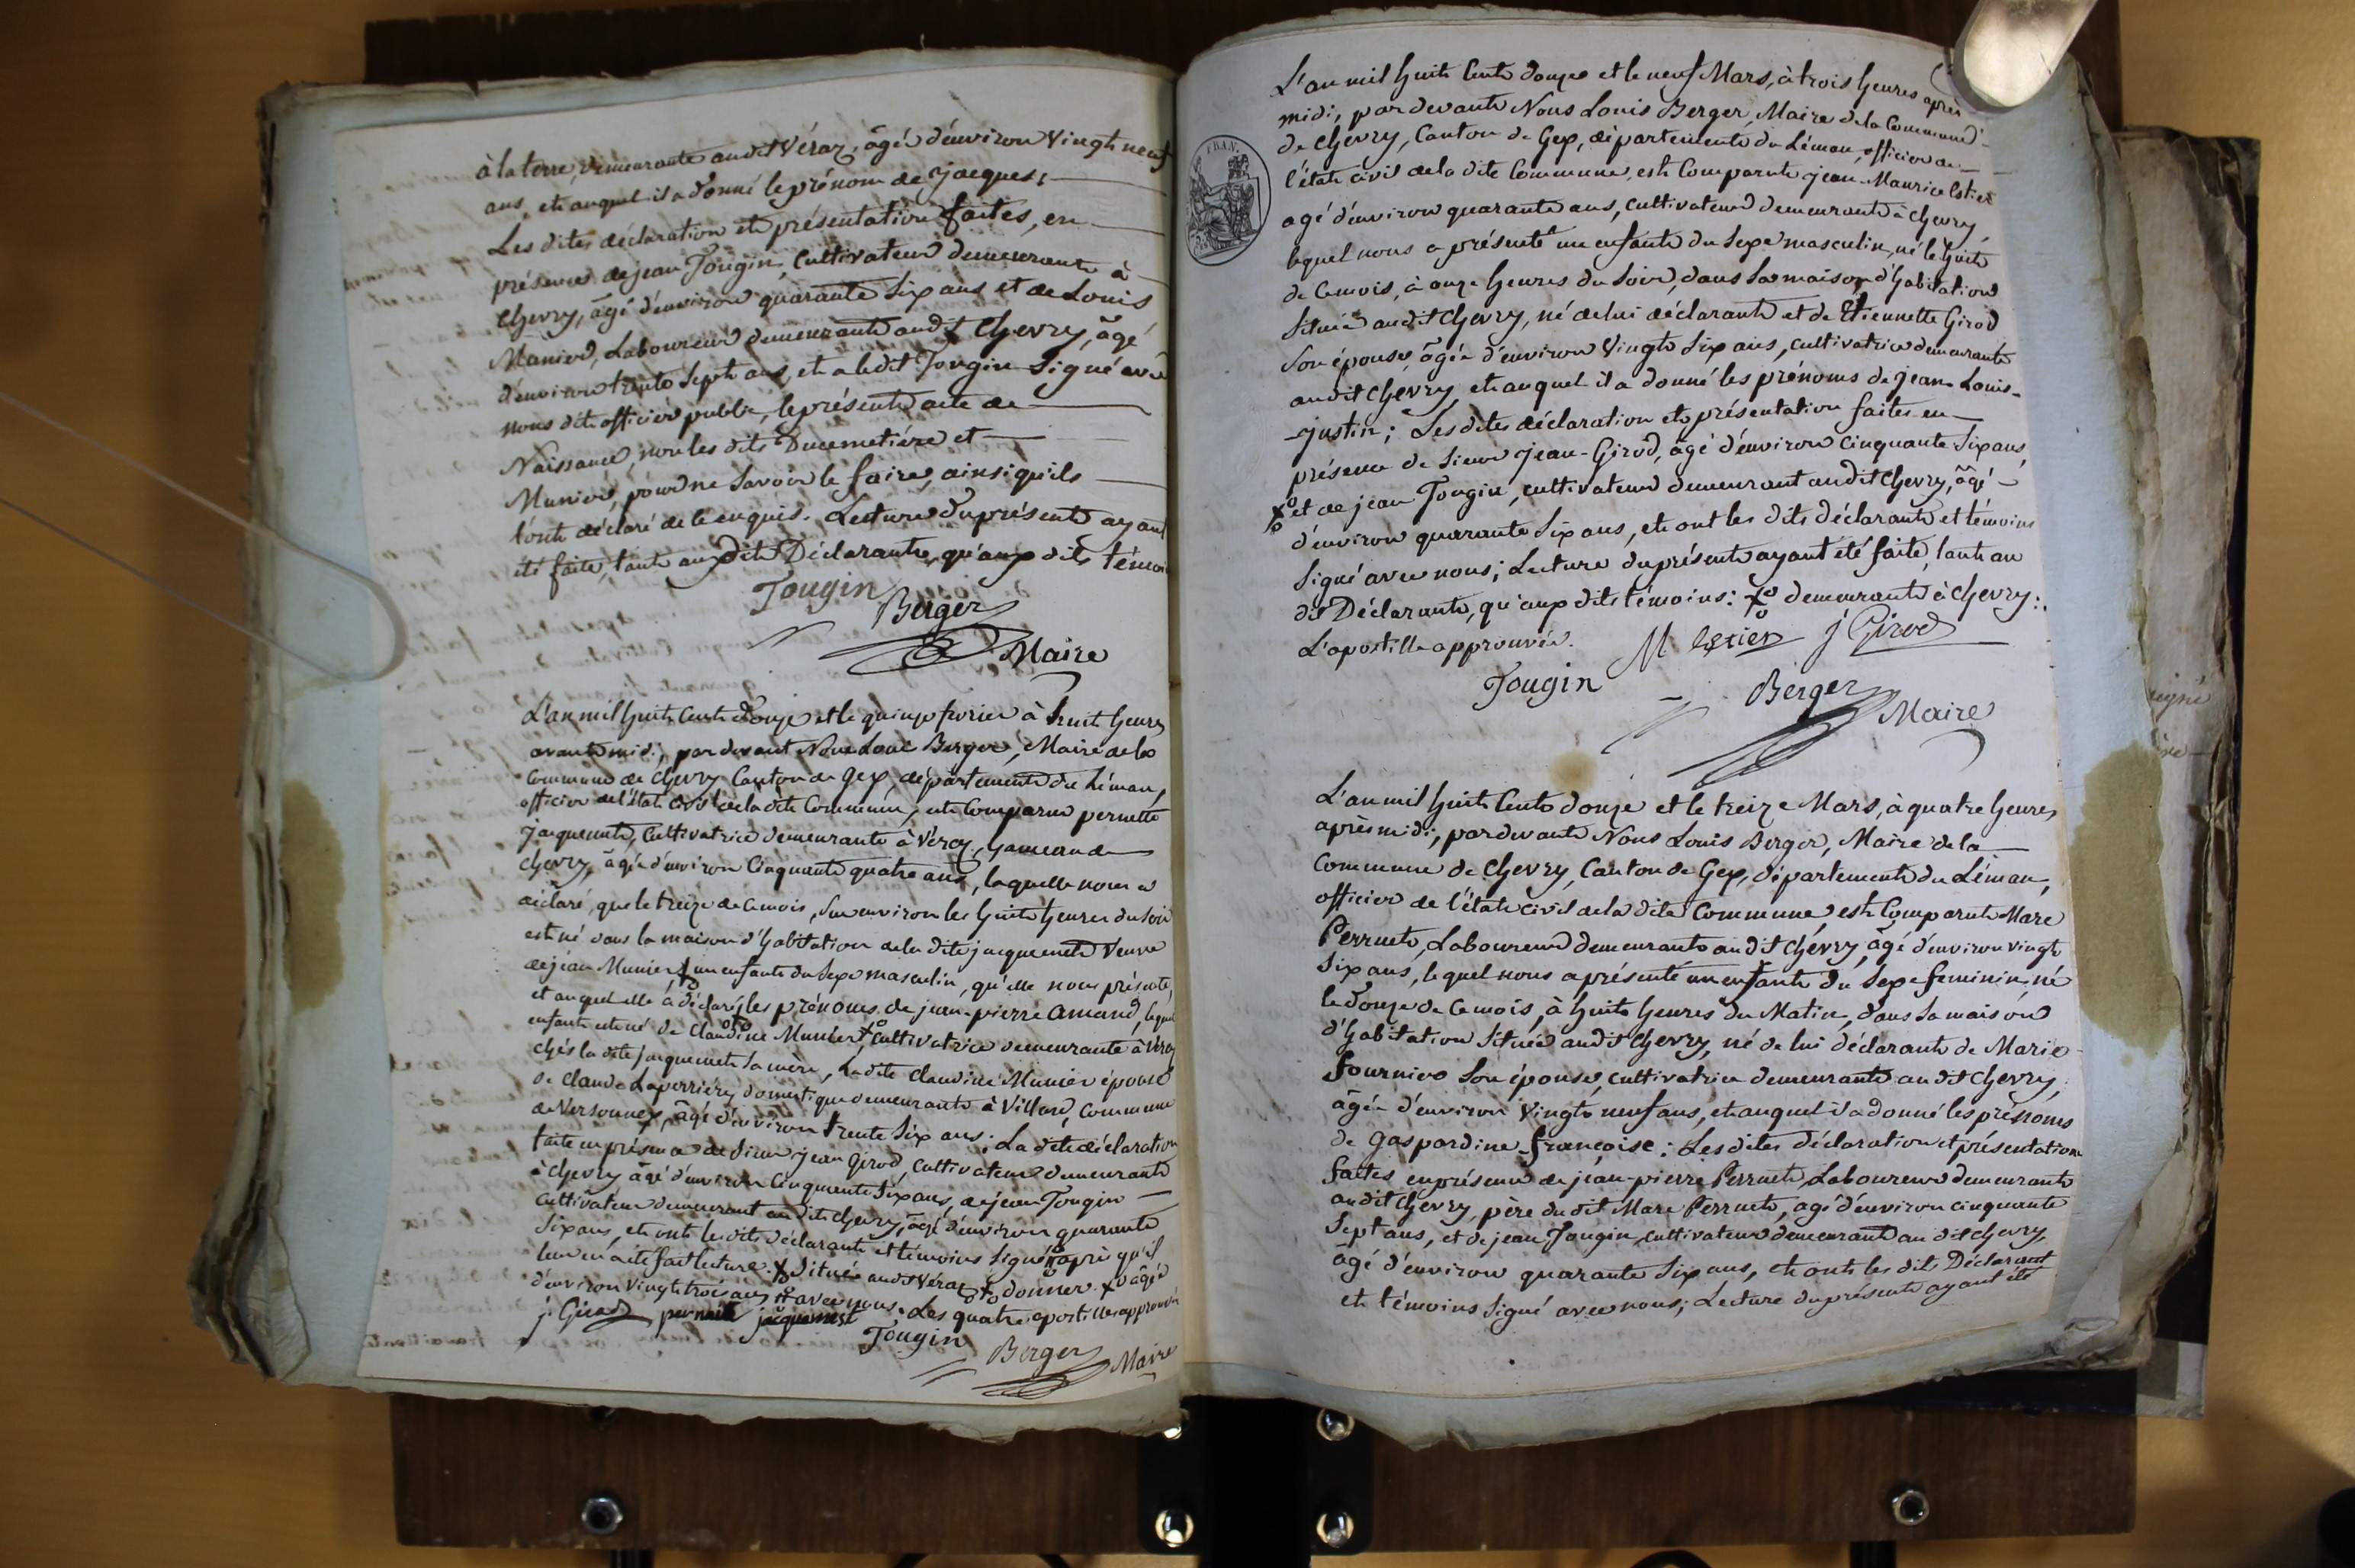 à la terre, demeurante audit Véraz, âgée d'environ Vingt neuf
ans, et auquel il a donné le prénom de jacques;
Les dites déclaration et présentation faites, en
présence de jean Tougin, Cultivateur demeurant à
Chevry, âgé d'environ quarante Six ans et de Louis
Munier, Laboureur demeurant audit Chevry, âgé
d'environ trente Sept ans, et a ledit Tougin Signé avec
nous dit officier public, le présent acte de
Naissance, non les dits Ducimetière et
Munier, pour ne Savoir le faire, ainsi qu'ils
l'ont déclaré de ce enquis. Lecture du présent ayant
été faite, tant au dit Déclarant, qu'aux dits témoins
Tougin
Berger
Maire
L'an mil huit Cent Douze et le quinze fevrier à huit heures
avant midi, par devant Nous Louis Berger, Maire de la
Commune de Chevry Canton de Gex, département du Léman,
officier de l'état civil de la dite Commune, est Comparue pernette
jacquemet, Cultivatrice demeurante à Véraz, hameau de
Chevry, âgée d'environ Cinquante quatre ans, laquelle nous a
déclaré, que le treize de ce mois, Sur environ les huit heures du Soir
est né dans la maison d'habitation de la dite jacquemet Veuve
de jean Munier, un enfant du Sexe masculin, qu'elle nous présente,
et auquel elle a déclaré les prénoms de jean-pierre Amand, lequel
enfant est né de Claudine Munier Cultivatrice demeurante à Véraz
chés la dite jacquemet Sa mère, La dite Claudine Munier épouse
de Claude Laperrière, domestique demeurant à Villard, Commune
de Versonnex, âgé d'environ trente Six ans: La dite déclaration
faite en présence de Sieur jean Girod, Cultivateur demeurant
à Chevry âgé d'environ Cinquante Six ans, de jean Tougin
Cultivateur demeurant au dit Chevry, âgé d'environ quarante
Six ans, et ont les dits déclarante et témoins Signé après qu'il
leur en a été fait lecture. Située audit Véraz donner âgée
d'environ Vingt trois ans avec nous. Les quatre apostilles approuvées
j. Girod pernette jacquemet
Tougin
Berger Maire
L'an mil huit Cent douze et le neuf Mars, à trois heures après
midi, par devant Nous Louis Berger, Maire de la Commune
de Chevry, Canton de Gex, département du Léman, officier de
l'état civil de la dite Commune, est Comparut jean-Maurice Estier
agé d'environ quarante ans, Cultivateur demeurant à Chevry,
lequel nous a présenté un enfant du Sexe masculin, né le huit
de Ce mois, à onze heures du Soir, dans Sa maison d'habitation
Située audit Chevry, né de lui déclarant et de Etiennette Girod
Son épouse, âgée d'environ Vingt Six ans, cultivatrice demeurante
audit Chevry, et auquel il a donné les prénoms de jean Louis-
justin; Les dites déclaration et présentation faites en
présence de Sieur jean-Girod, âgé d'environ Cinquante Six ans,
et de jean Tougin, cultivateur demeurant audit Chevry, âgé
d'environ quarante Six ans, et ont les dits déclarant et témoins
Signé avec nous; Lecture du présent ayant été faite, tant au
dit Déclarant, qu'aux dits témoins: demeurant à Chevry:
L'apostille approuvée. M estier j Girod
Tougin
Berger
Maire
L'an mil huit Cent douze et le treize Mars, à quatre heures
après midi, par devant Nous Louis Berger, Maire de la
Commune de Chevry, Canton de Gex, département du Léman,
officier de l'état civil de la dite Commune, est Comparut Marc
Perruet, Laboureur demeurant audit Chevry, âgé d'environ vingt
Six ans, lequel nous a présenté un enfant du Sexe feminin, né
le Douze de Ce mois, à huit heures du Matin, dans Sa maison
d'habitation Située audit Chevry, né de lui déclarant de Marie
fournier Son épouse, cultivatrice demeurante au dit Chevry,
âgée d'environ Vingt neuf ans, et auquel il a donné les prénoms
de Gaspardine-françoise: Les dites déclaration et présentation
faites en présence de jean-pierre Perruet, Laboureur demeurant
audit Chevry, père du dit Marc Perruet, agé d'environ cinquante
Sept ans, et de jean Tougin, cultivateur demeurant au dit Chevry,
âgé d'environ quarante Six ans, et ont les dit Déclarant
et témoins Signé avec nous; Lecture du présent ayant été